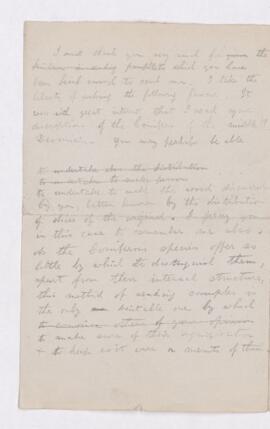 I must thank you very much for the
pamphlets which you have
been kind enough to send me. I take the
liberty of asking the following favour. It
was with great interest that I read your
description of the Conifers of the middle
Devonian. You may perhaps be able
to undertake the distribution
to undertake to
to undertake to make the wood discovered
by you, better known by the distribution
of slices of the original. I pray you
in this case to remember me also.
As the Coniferous species offer so
little by which to distinguish them,
apart from their internal structure,
this method of sending samples is
the only suitable one by which
to convince others of your opinion
to make sure of their
& to keep